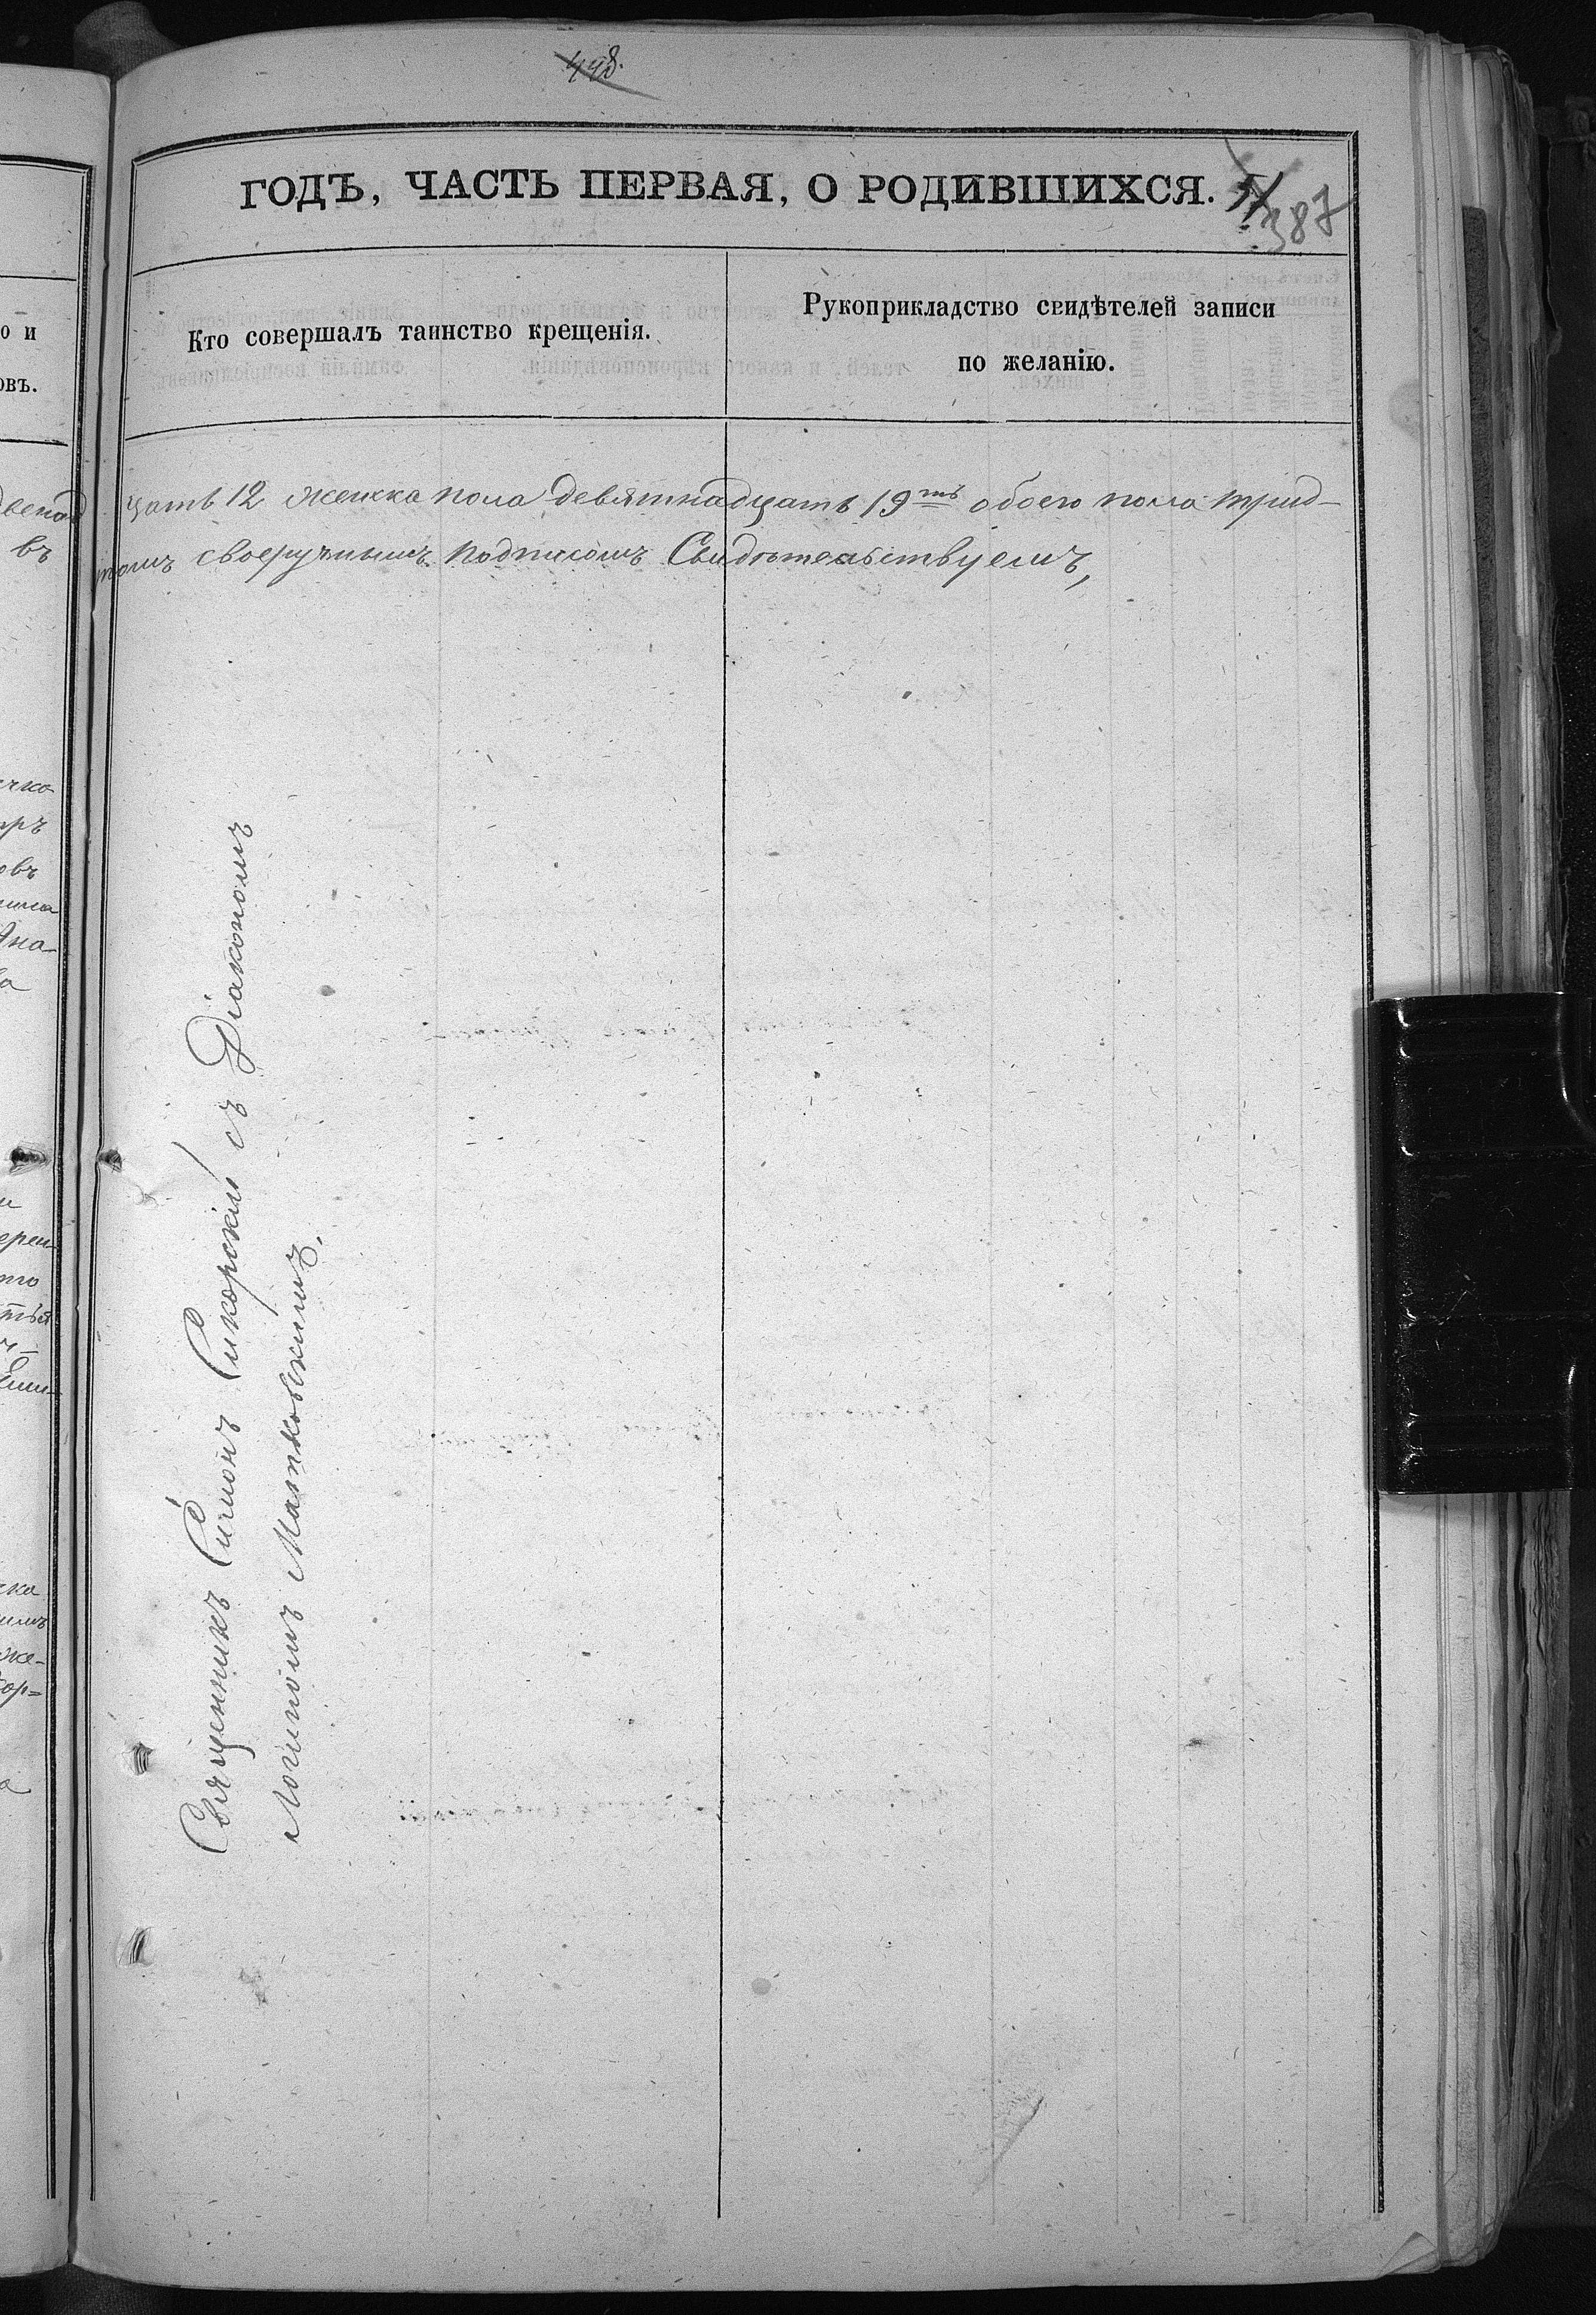 448.
ГОДЪ, ЧАСТЬ ПЕРВАЯ, О РОДИВШИХСЯ.
387
Кто совершалъ таинство крещенія.
Рукоприкладство свидѣтелей записи
по желанію.
цать 12 женска пола девятнадцать 19ть обоего пола трид-
томъ своеручнымъ подписомъ Свидѣтельствуемъ,
Священникъ Симонъ Сикорскій съ Діакономъ
Логиномъ Матковскимъ.
о и
овъ.
двенад
въ